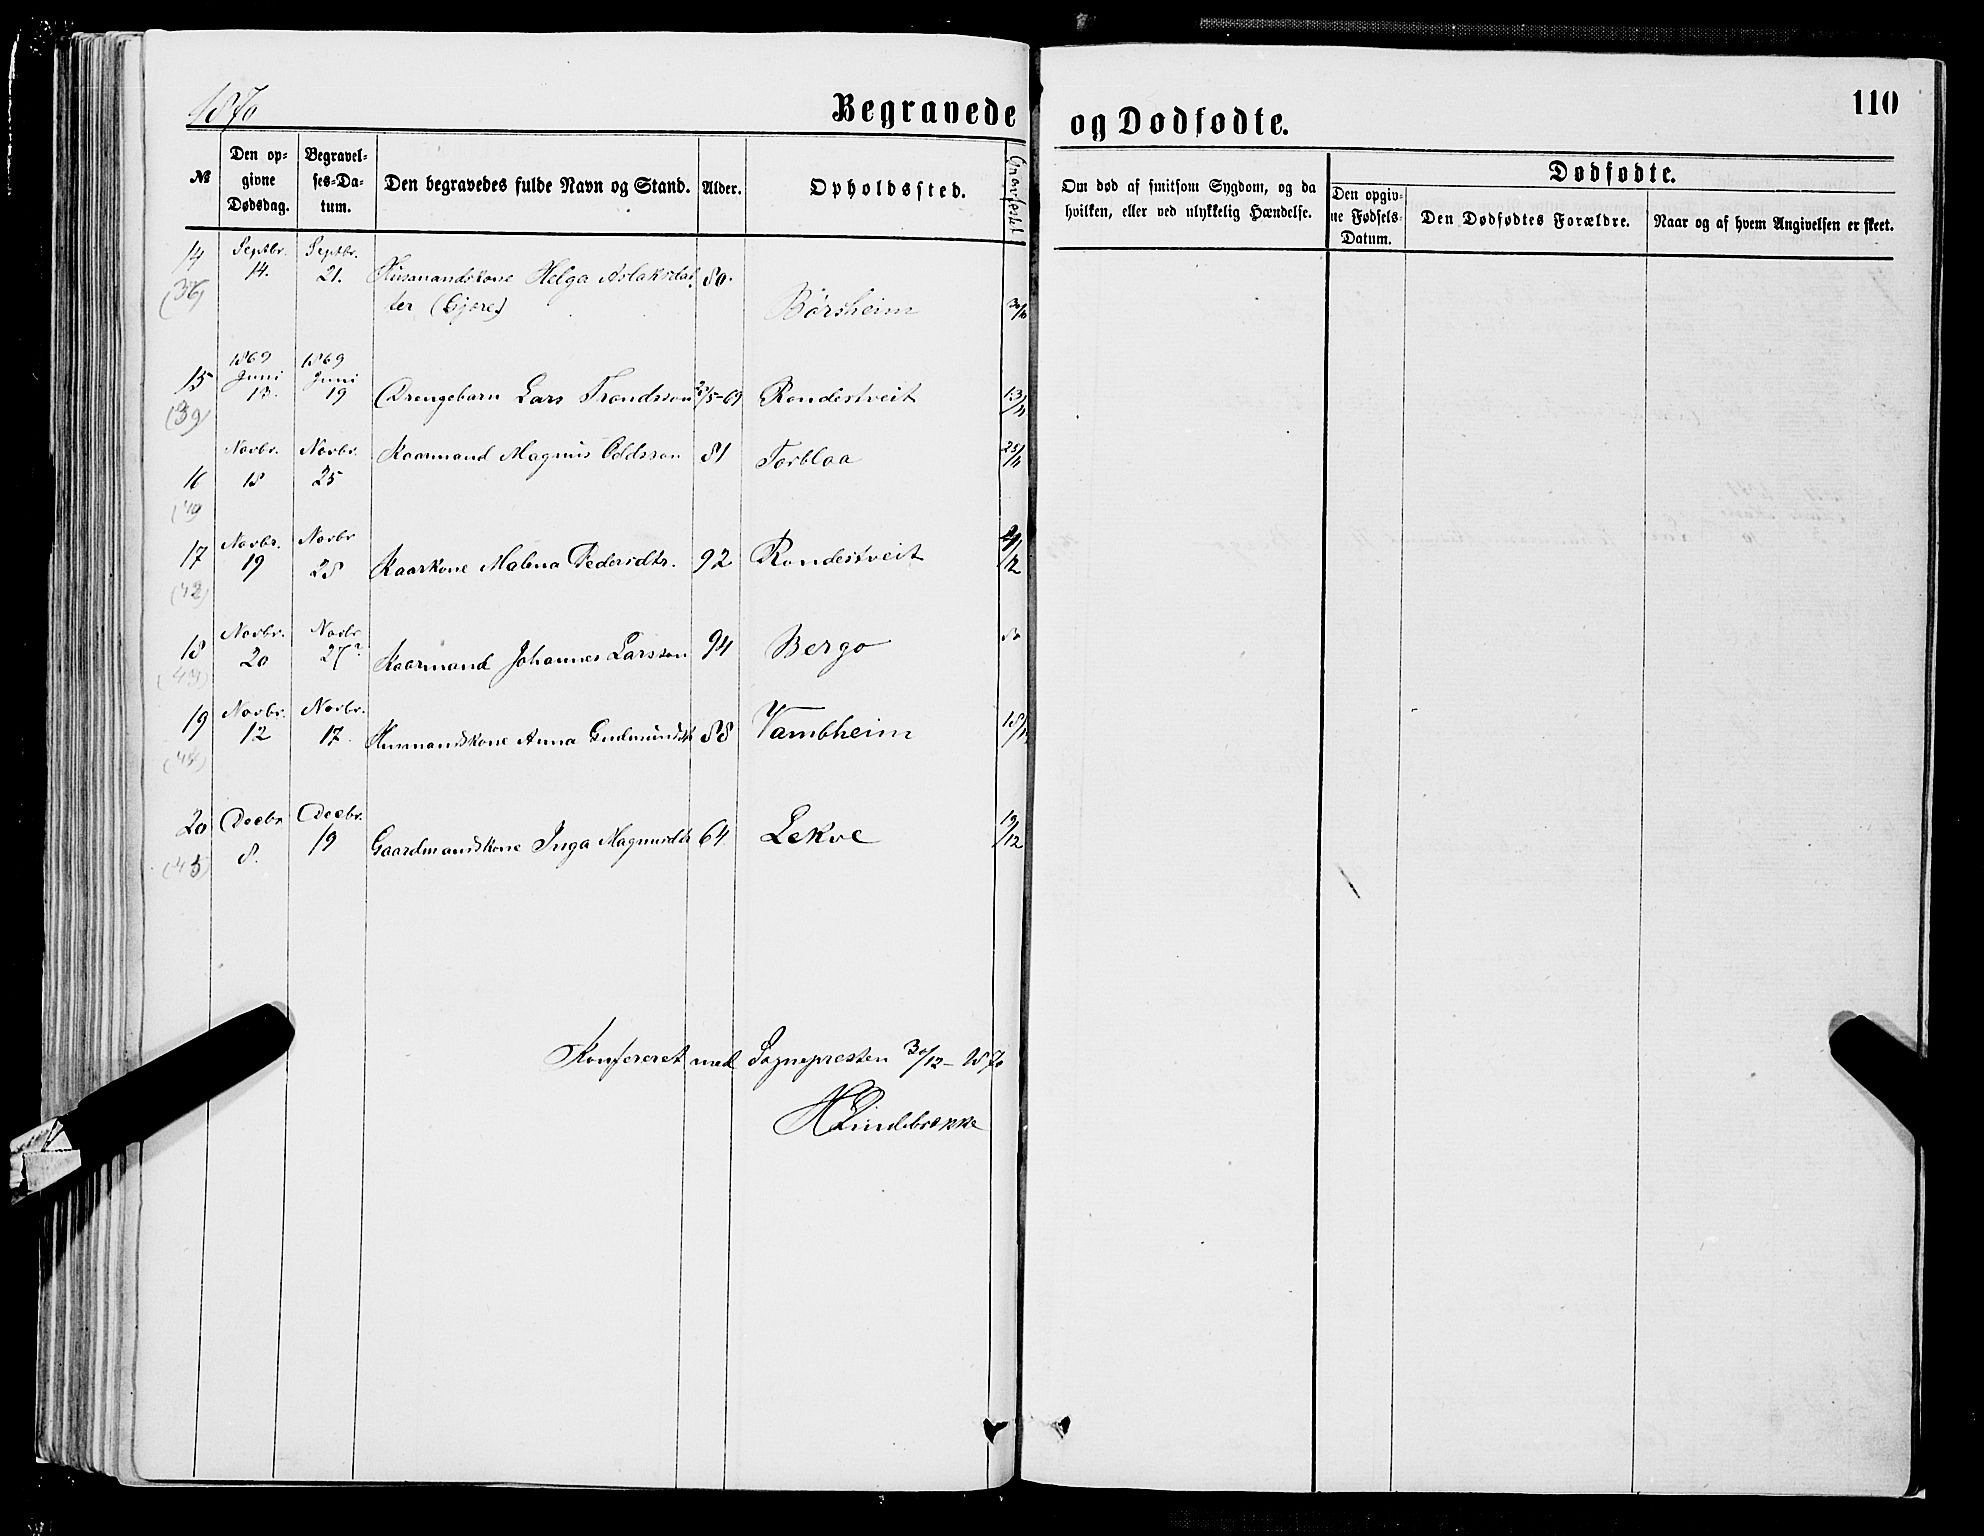 1870
Begravede og Dødfødte.
110
№
Den opgivne Dødsdag.
Begravelses-Datum.
Den begravedes fulde Navn og Stand.
Alder.
Opholdssted.
Gravfæstet
Om død af smitsom Sygdom, og da hvilken, eller ved ulykkelig Hændelse.
Dødfødte.
Den opgivne Fødsels-Datum.
Den Dødfødtes Forældre.
Naar og af hvem Angivelsen er skeet.
14 Septbr. 14. Septbr. 21. Husmandskone Helga Aslaksdat- 80.
(36) ter (Gjøre) Børsheim 30/10
15 1869 Juni 13. 1869 Juni 19 Drengebarn Lars Trondsson /5-69 Rondestveit 13/11
(39)
16 Novbr. 18 Novbr. 25 Kaarmand Magnus Oddsson 81 Torbloa 25/11
17 Novbr. 19 Novbr 28 Kaarkone Malena Pedersdtr. 92 Rondestveit /12
(42)
18 Novbr. 20 Novbr. 27 Kaarmand Johannes Larsson 94 Bergo
19 Novbr. 12 Novbr. 17. Husmandskone Anna Gudmundsdtr 88 Vambheim 18/12
20 Decbr 8. Decbr. 19 Gaardmandskone Inga Magnusdtr 64. Lekve 19/12
(45)
Konfereret med Sognepresten 30/12-1870
H Lindebrække